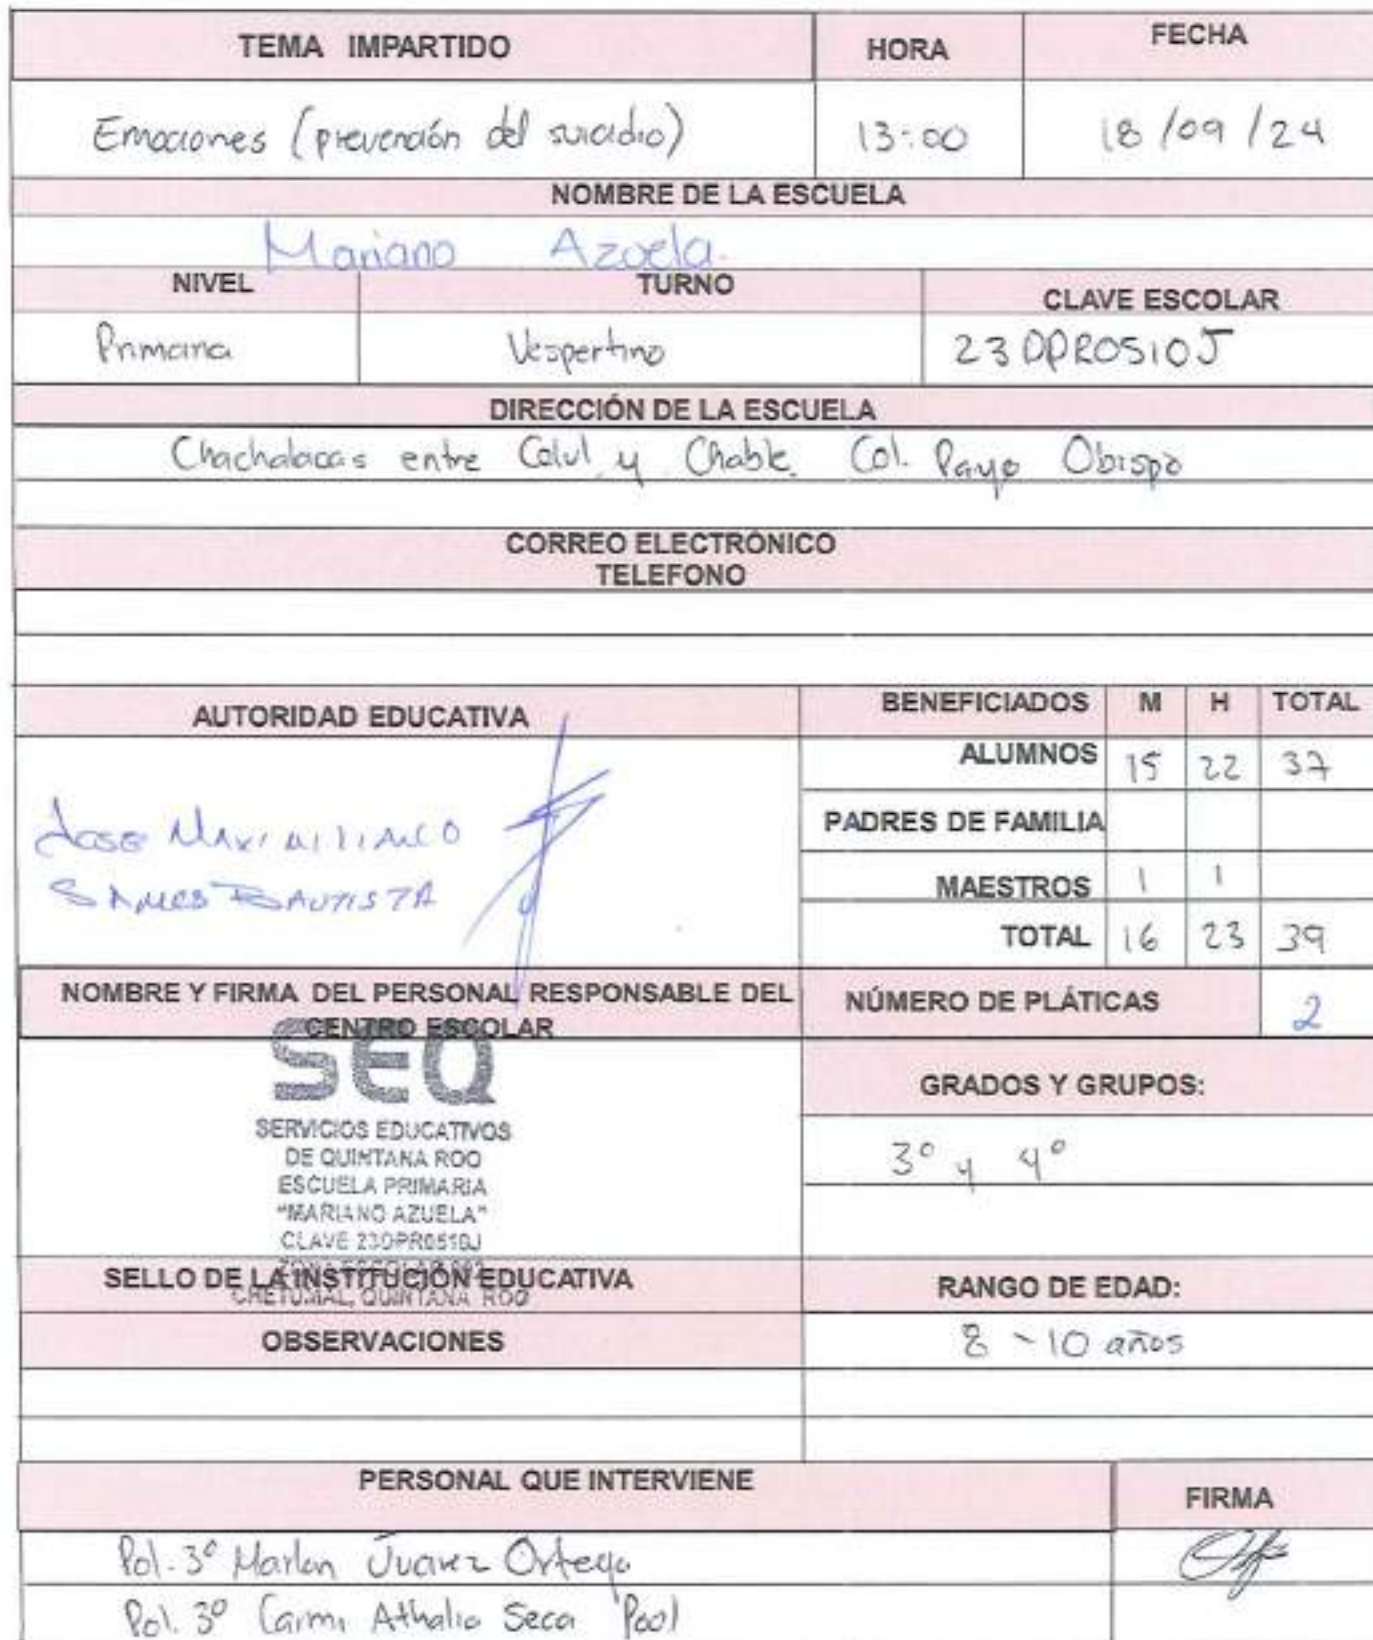 TEMA IMPARTIDO HORA FECHA
Emociones (prevención del suicidio) 13:00 18/09/24
NOMBRE DE LA ESCUELA
Mariano Azuela.
NIVEL TURNO CLAVE ESCOLAR
Primaria Vespertino 23DPR0510J
DIRECCIÓN DE LA ESCUELA
Chachalacas entre Calul y Chable. Col. Payo Obispo
CORREO ELECTRÓNICO
TELEFONO
AUTORIDAD EDUCATIVA BENEFICIADOS M H TOTAL
ALUMNOS 15 22 37
PADRES DE FAMILIA
JOSE
BAUTISTA
MAESTROS 1 1
TOTAL 16 23 39
NOMBRE Y FIRMA DEL PERSONAL RESPONSABLE DEL
CENTRO ESCOLAR
NÚMERO DE PLÁTICAS 2
SEQ
SERVICIOS EDUCATIVOS
DE QUINTANA ROO
ESCUELA PRIMARIA
"MARIANO AZUELA"
CLAVE 23DPR0510J
ZONA ESCOLAR
CHETUMAL, QUINTANA ROO
GRADOS Y GRUPOS:
3° y 4°
SELLO DE LA INSTITUCIÓN EDUCATIVA RANGO DE EDAD:
OBSERVACIONES 8 - 10 años
PERSONAL QUE INTERVIENE FIRMA
Pol. 3° Marlon Juarez Ortega
Pol. 3° Carmi Athalia Seca Pool